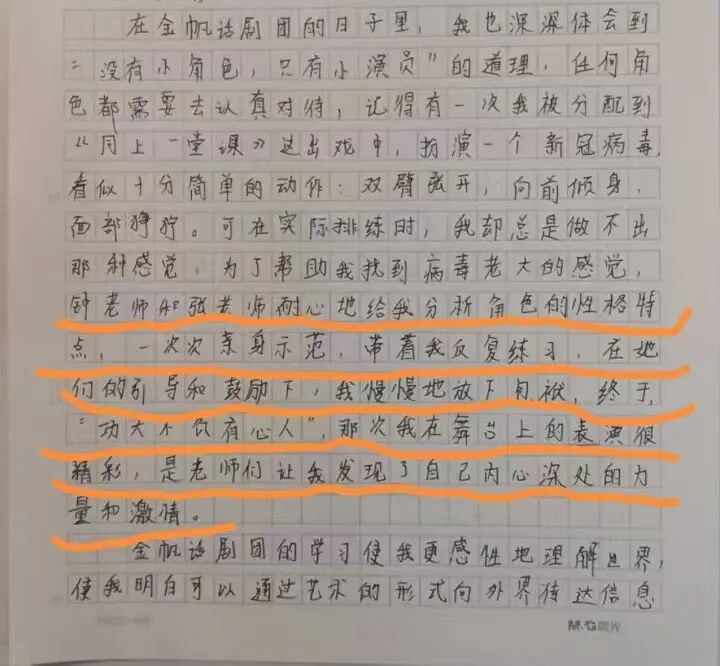 在金帆话剧团的日子里，我也深深体会到
“没有小角色，只有小演员”的道理，任何角
色都需要去认真对待，记得有一次我被分配到
《同上一堂课》这出戏中，扮演一个新冠病毒，
看似十分简单的动作：双臂张开，向前倾身，
面部狰狞。可在实际排练时，我却总是做不出
那种感觉，为了帮助我找到病毒老大的感觉，
钟老师和张老师耐心地给我分析角色的性格特
点，一次次亲身示范，带着我反复练习，在她
们的引导和鼓励下，我慢慢地放下包袱，终于，
“功夫不负有心人”，那次我在舞台上的表演很
精彩，是老师们让我发现了自己内心深处的力
量和激情。
金帆话剧团的学习使我更感性地理解世界，
使我明白可以通过艺术的形式向外界传达信息
M&G晨光